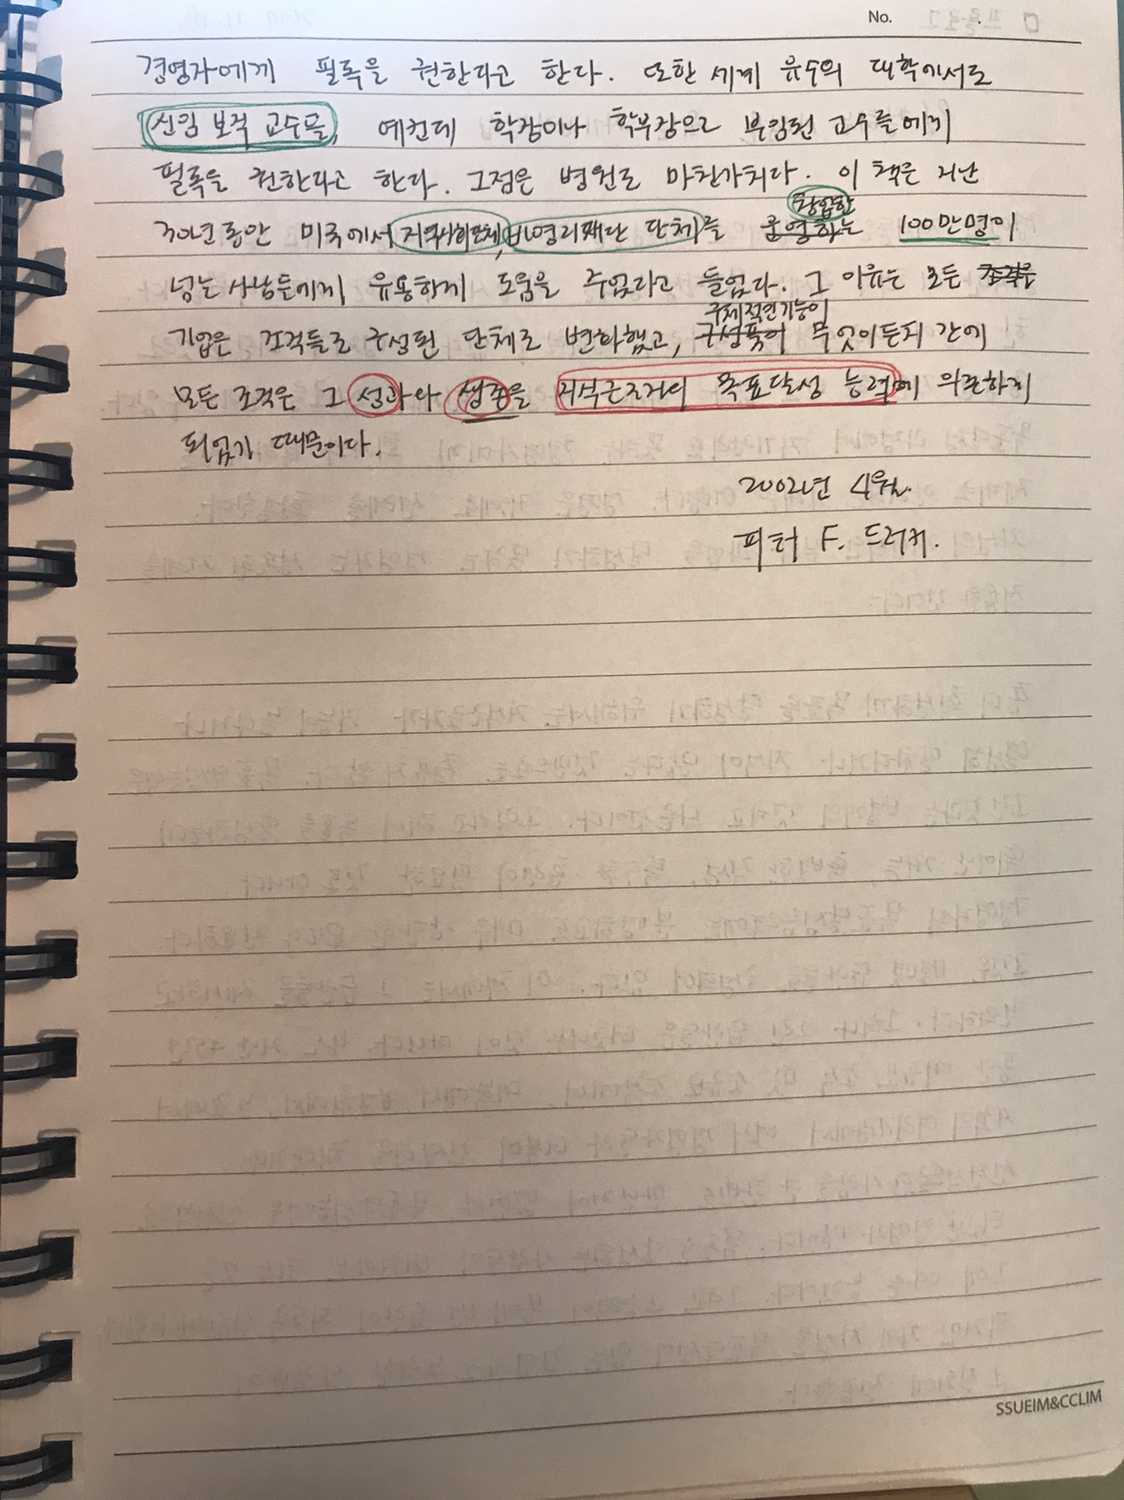 No.
경영자에게 필독을 권한다고 한다. 또한 세계 유수의 대학에서도
신임 보직 교수들, 예컨데 학장이나 학부장으로 부임된 교수들에게
필독을 권한다고 한다. 그점은 병원도 마찬가지다. 이 책은 지난
창업한
30년동안 미국에서 지역사회단체, 비영리재단 단체를 운영하는 100만명이
넘는 사람들에게 유용하게 도움을 주었다고 들었다. 그 이유는 모든 조직은
구체적인 기능이
기업은 조직들로 구성된 단체로 변화했고, 무엇이든지 간에
모든 조직은 그 성과와 생존을 지식근로자의 목표달성 능력에 의존하게
되었기 때문이다.
2002년 4월.
피터 F. 드러커.
SSUEIM&CCLIM